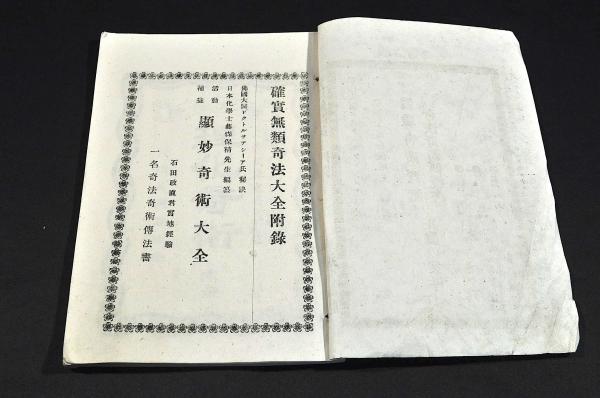 確實無類奇法大全附錄
佛國大醫ドクトルヲアシーア氏秘訣
日本化學士藤森保精先生編纂
活動
補益
顯妙奇術大全
石田政直君實地經驗
一名奇法奇術傳法書